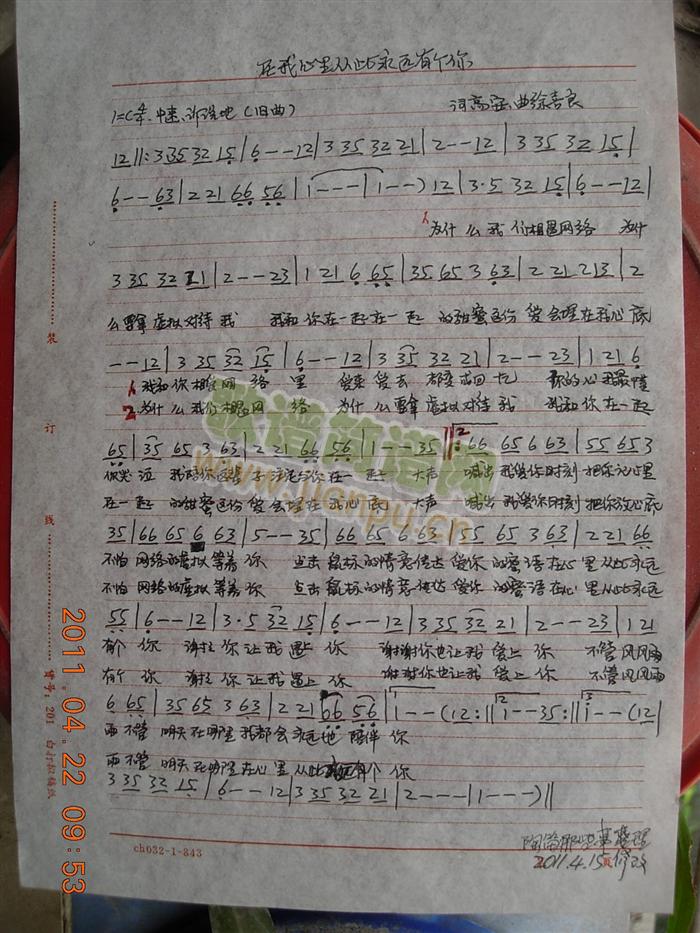 在我心里从此永远有个你
1=C 4/4 中速、诉说地（旧曲） 词高 曲徐喜良
12 ‖: 3 35 32 15 | 6 - - 12 | 3 35 32 21 | 2 - - 12 | 3 35 32 15 |
6 - - 63 | 2 21 66 56 | 1 - - - | 1 - - ) 12 | 3·5 32 15 | 6 - - 12 |
1、为什么我们相遇网络 为什
3 35 32 21 | 2 - - 23 | 1 21 6 65 | 35 65 3 63 | 2 21 21 3 | 2
么要拿虚拟对待我 我和你在一起在一起 的甜蜜这份爱会埋在我心底
- - 12 | 3 35 32 15 | 6 - - 12 | 3 35 32 21 | 2 - - 23 | 1 21 6
1、我和你相 网络里 爱来爱去都变成回忆 你的心我最懂
2、为什么我们相遇网络 为什么要拿虚拟对待我 我和你在一起
65 | 35 65 3 63 | 2 21 66 56 | 1 - - 35 ‖: 66 65 6 63 | 55 65 3
你 我 你 你在一起 大声喊出我爱你时刻把你记心里
在一起 的甜蜜这份爱会埋在我心底 大声喊出我爱你时刻把你放心底
35 | 66 65 6 63 | 5 - - 35 | 66 65 6 63 | 55 65 3 63 | 2 21 66
不怕网络的虚拟等着你 点击鼠标的情意传达爱你的蜜语在心里从此永远
不怕网络的虚拟等着你 点击鼠标的情意传达爱你的蜜语在心里从此永远
55 | 6 - - 12 | 3·5 32 15 | 6 - - 12 | 3 35 32 21 | 2 - - 23 | 1 21
有个你 谢谢你让我遇上你 谢谢你也让我爱上你 不管风风雨
有个你 谢谢你让我遇上你 谢谢你也让我爱上你 不管风风雨
6 65 | 35 65 3 63 | 2 21 66 56 | 1 - - (12 :‖ 1 - - 35 :‖ 1 - - (12 |
雨不管明天在哪里我都会永远地陪伴你
雨不管明天在哪里在心里从此永远有个你
3 35 32 15 | 6 - - 12 | 3 35 32 21 | 2 - - - | 1 - - - ) ‖
2011.4.15 修改
ch032-1-843
装
订
线
货号：201
2011.04.22 09:53
歌谱简谱网
www.jianpu.cn